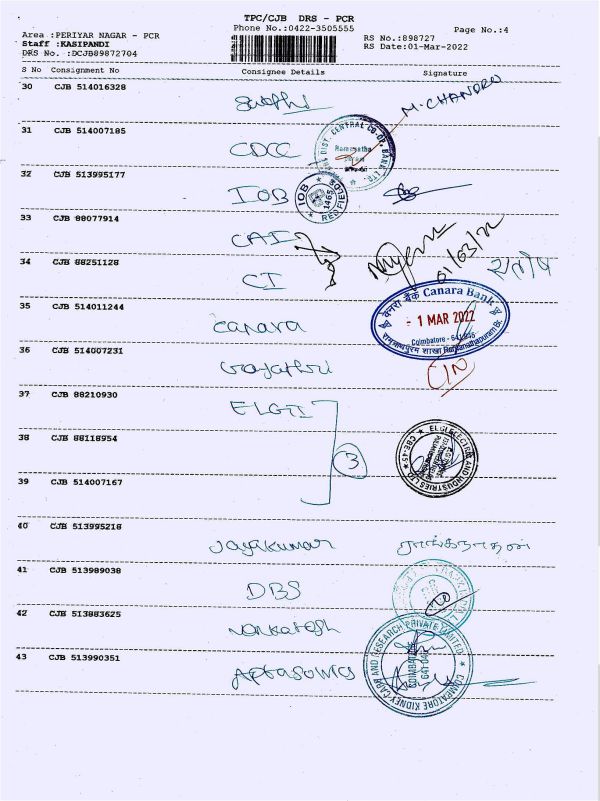 TPC/CJB DRS - PCR
Phone No.:0422-3505555
Page No.:4
Area :PERIYAR NAGAR - PCR
Staff :KASIPANDI
DRS No. :DCJB89872704
RS No.:898727
RS Date:01-Mar-2022
S No Consignment No Consignee Details Signature
30 CJB 514016328
M. CHANDRU
31 CJB 514007185 CDCC
DIST. CENTRAL CO-OP. BANK LTD.
32 CJB 513995177 IOB
IOB 1465 REDFIELDS
33 CJB 88077914 CAI
01/03/22
34 CJB 88251128 CI
35 CJB 514011244 Canara
केनरा बैंक Canara Bank
- 1 MAR 2022
Coimbatore - 641 045
रामनाथपुरम शाखा Ramanathapuram Br.
36 CJB 514007231 Gayathri
37 CJB 88210930 ELGI
38 CJB 88118954
3
ELGI ELECTRIC AND INDUSTRIES LTD CBE-45
39 CJB 514007167
40 CJB 513995218 Jayakumar
41 CJB 513989038 DBS
42 CJB 513883625 Venkatesh
43 CJB 513990351
COIMBATORE KIDNEY CARE AND RESEARCH PRIVATE LIMITED
COIMBATORE
641 045